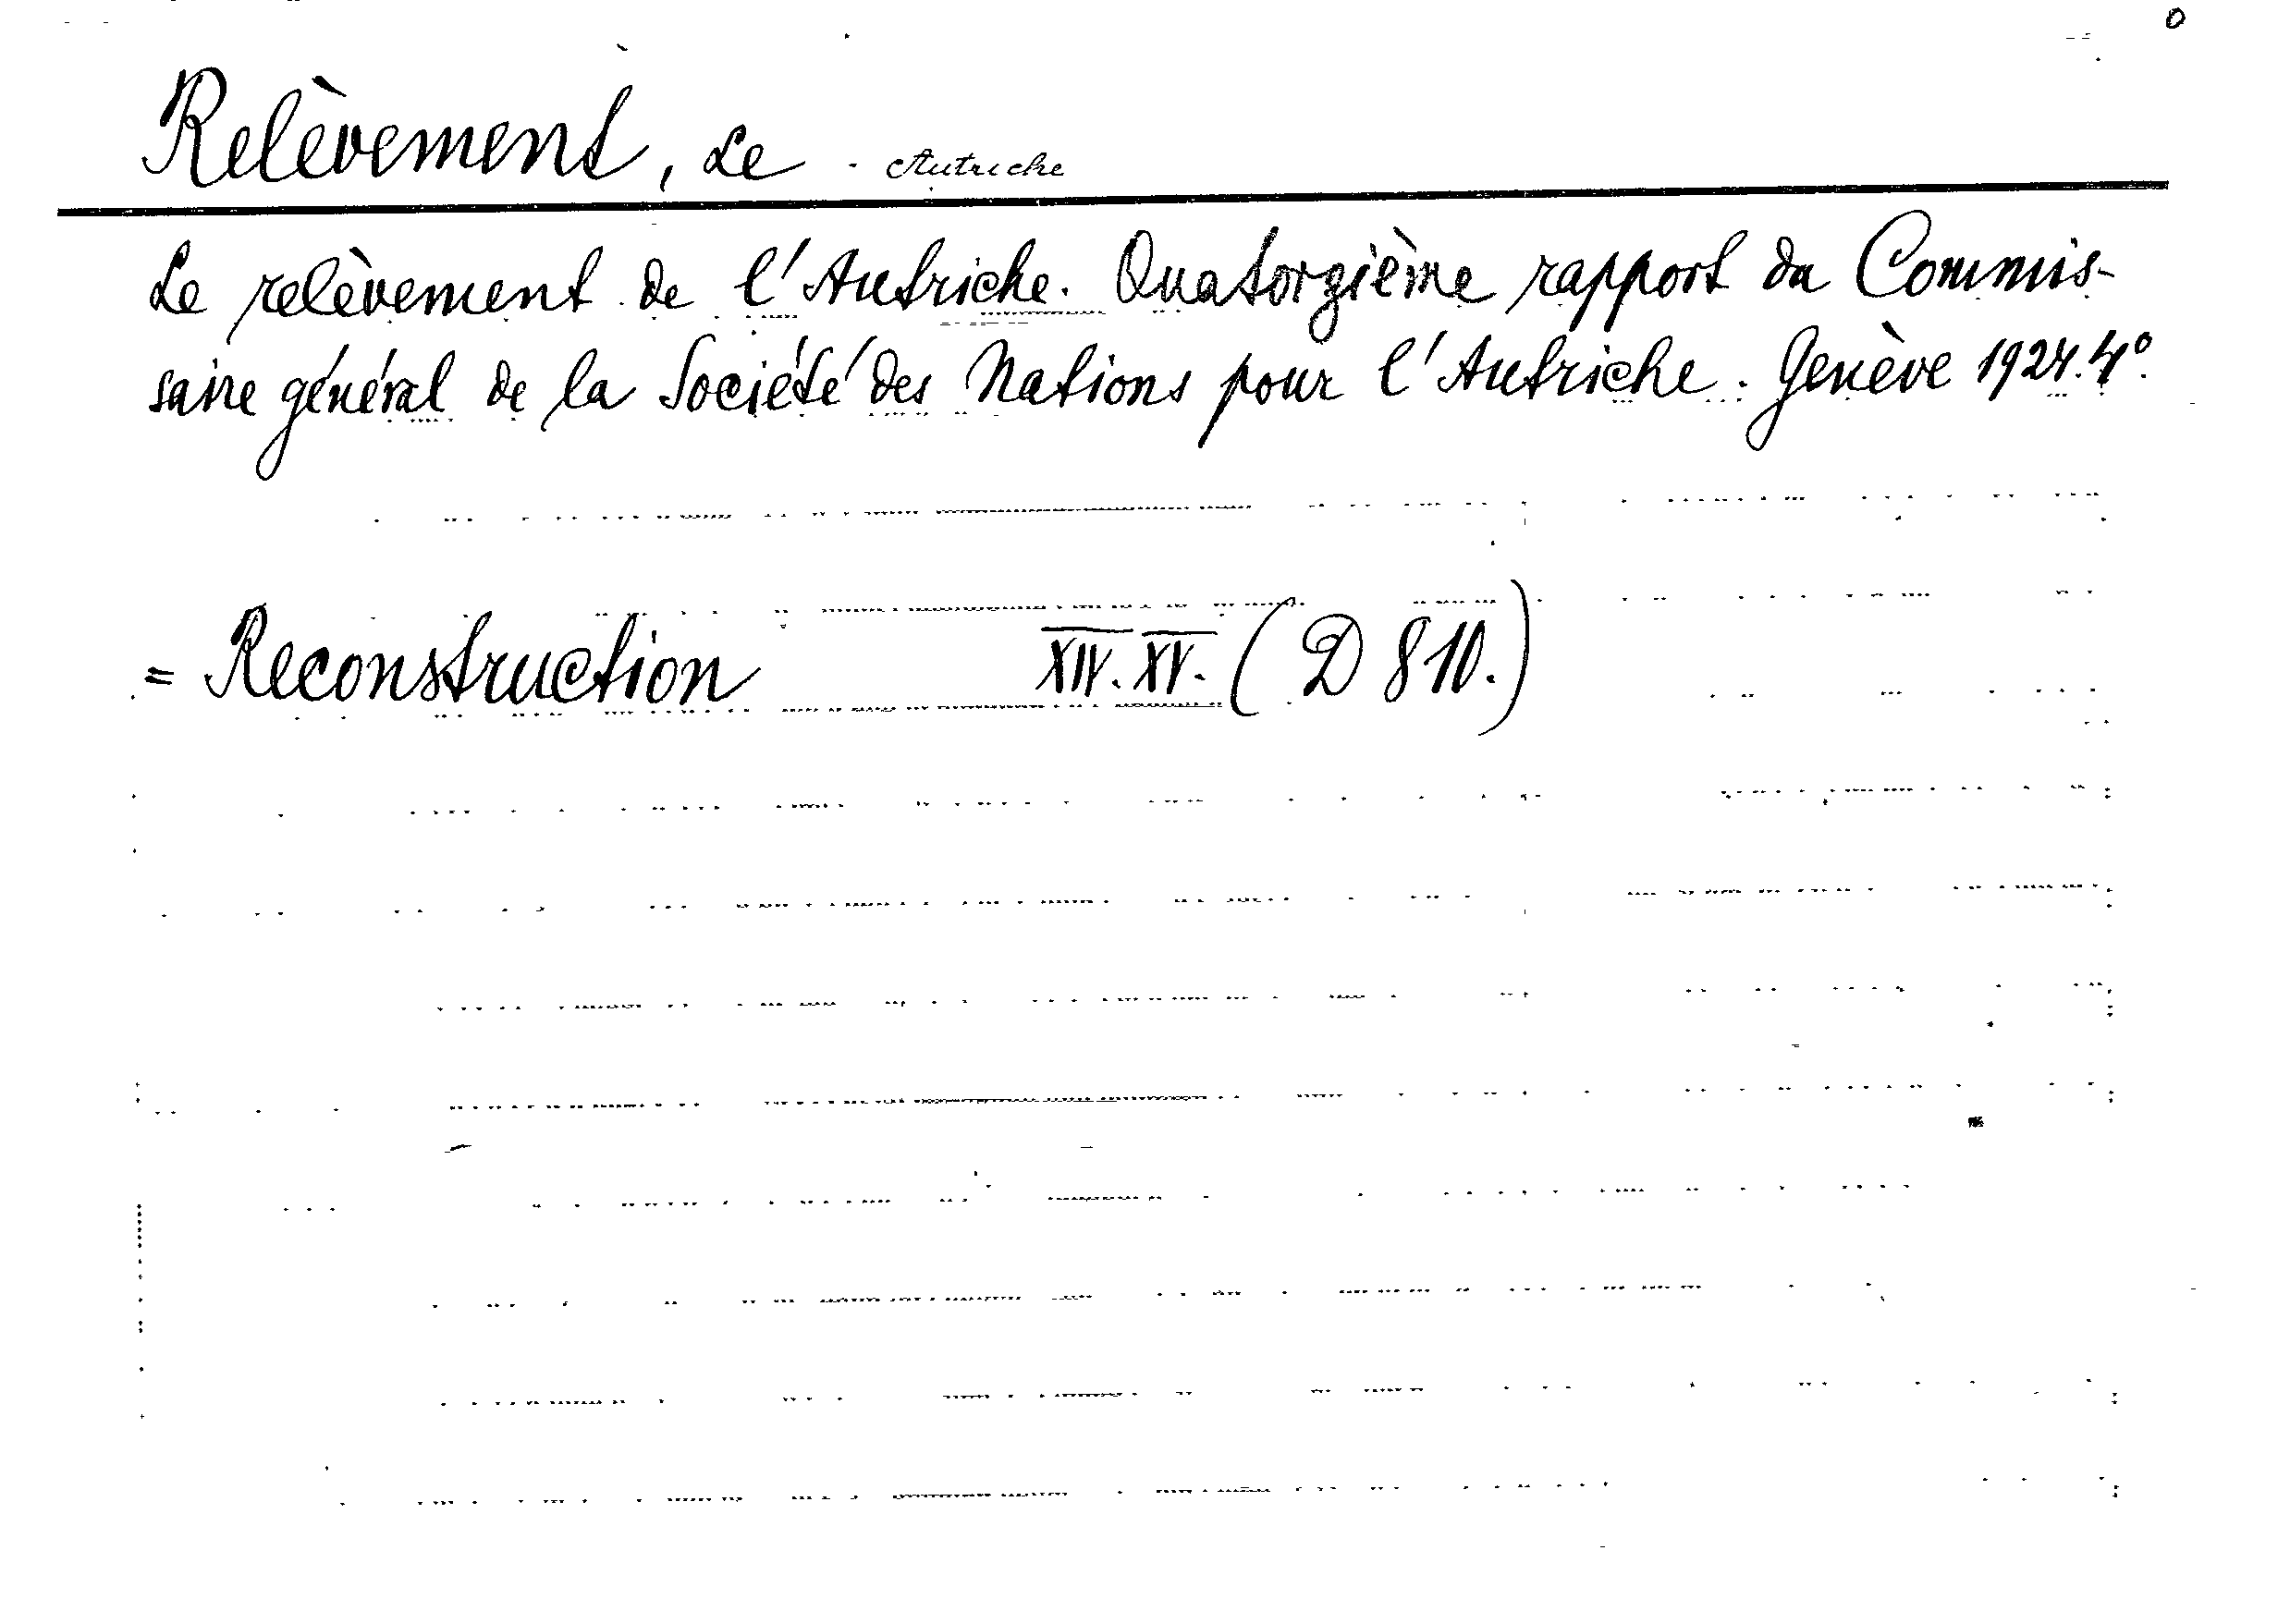 Relèvement, Le - Autriche
Le relèvement de l'Autriche. Quatorzième rapport du Commis-
saire général de la Société des Nations pour l'Autriche. Genève 1924. 4°.
= Reconstruction XIV. XV. (D 810.)